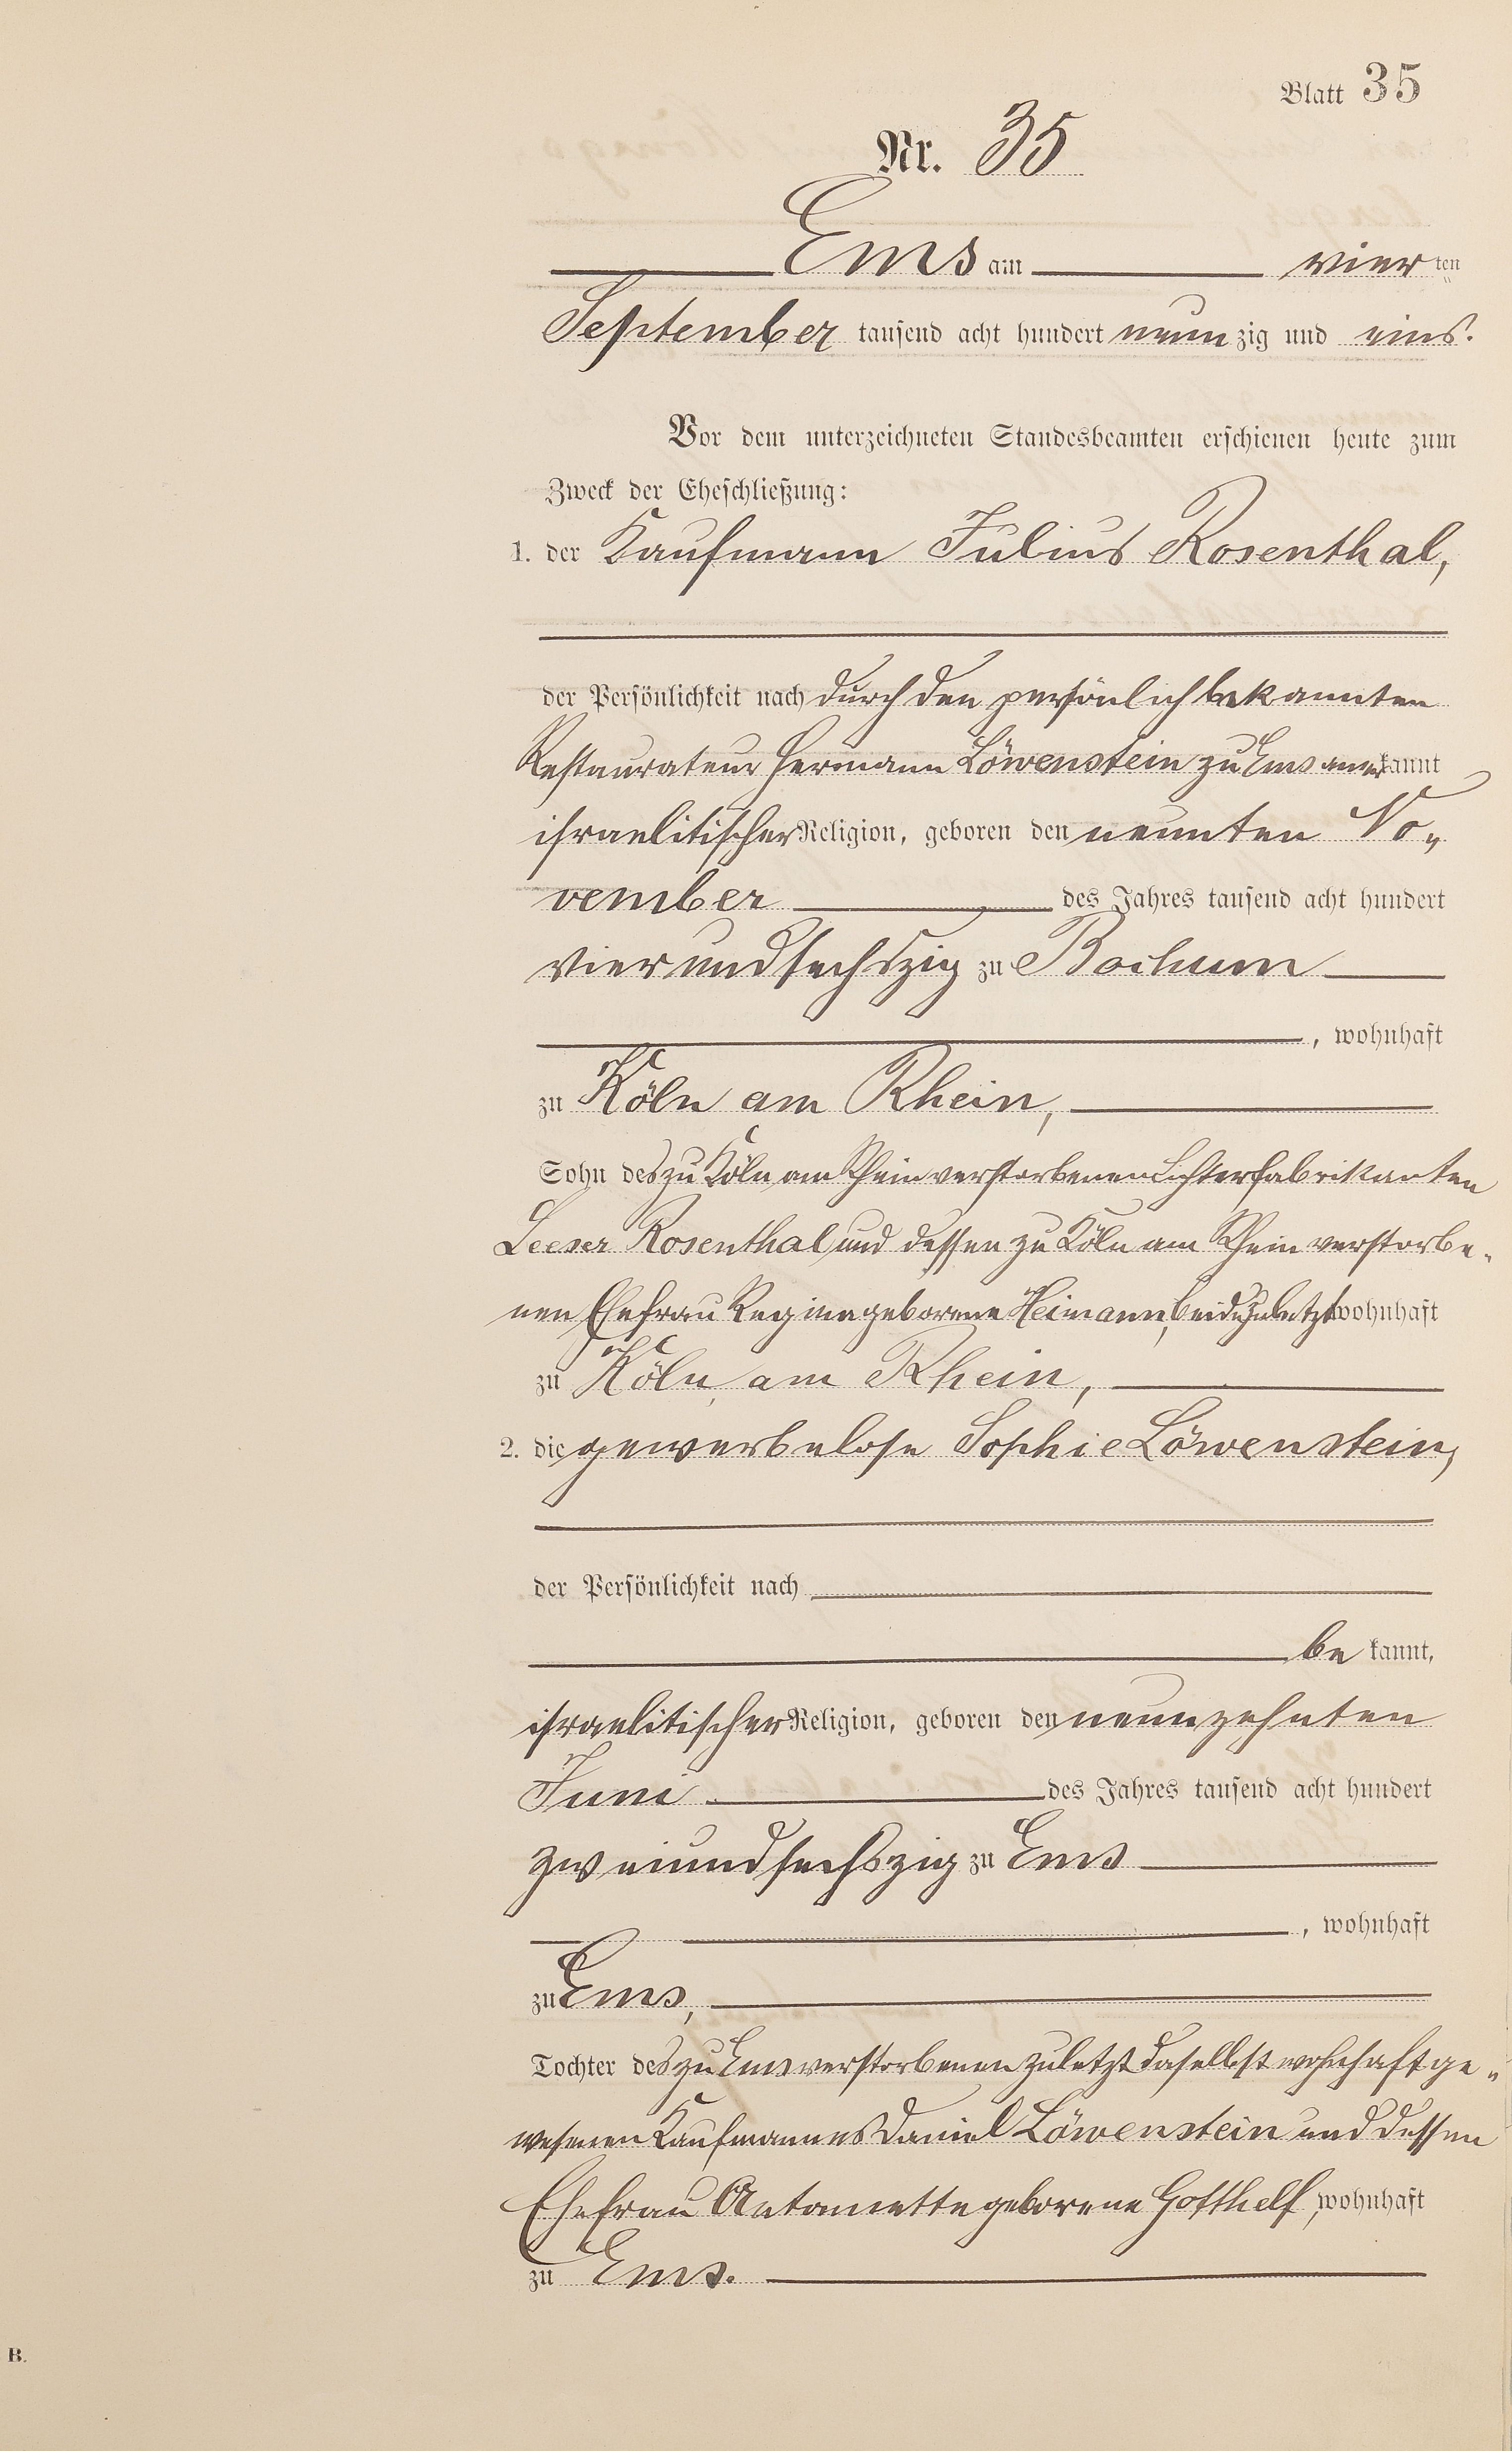 Blatt 35
Nr. 35
Ems am vierten
September tausend acht hundert neunzig und eins.
Vor dem unterzeichneten Standesbeamten erschienen heute zum
Zweck der Eheschließung:
1. der Kaufmann Julius Rosenthal,
der Persönlichkeit nach durch den persönlich bekannten
Restaurateur Hermann Löwenstein zu Ems anerkannt
israelitischer Religion, geboren den neunten No„
vember des Jahres tausend acht hundert
vierundsechszig zu Bochum
, wohnhaft
zu Köln am Rhein,
Sohn des zu Köln am Rhein verstorbenen Lichterfabrikanten
Leeser Rosenthal und dessen zu Köln am Rhein verstorbe„
nen Ehefrau Regina geborene Heimann, beide zuletzt wohnhaft
zu Köln am Rhein,
2. die gewerbelose Sophie Löwenstein,
der Persönlichkeit nach
be kannt,
israelitischer Religion, geboren den neunzehnten
Juni des Jahres tausend acht hundert
zweiundsechszig zu Ems
, wohnhaft
zu Ems,
Tochter des zu Ems verstorbenen zuletzt daselbst wohnhaft ge„
wesenen Kaufmannes Daniel Löwenstein und dessen
Ehefrau Antonette geborene Gotthelf, wohnhaft
zu Ems.
B.